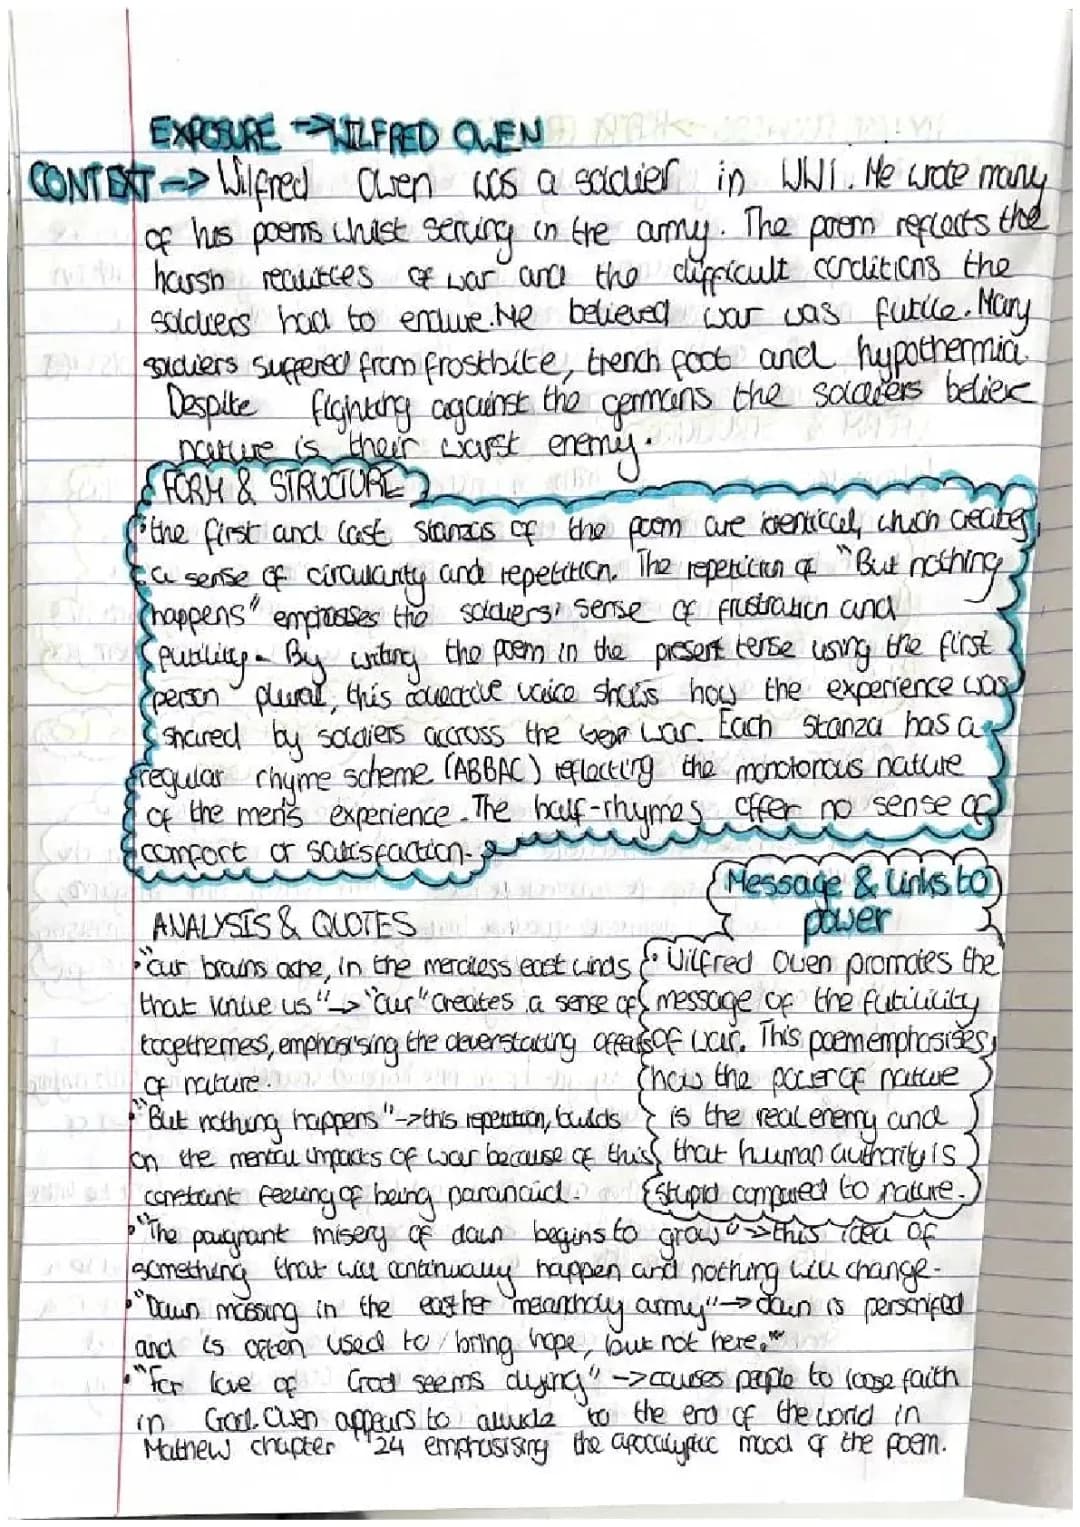 EXPOSURE → WILFRED OWEN
CONTEXT → Wilfred Owen was a soldier in WW1. He wrote many
of his poems whilst serving in the army. The poem reflects the
harsh realities of war and the difficult conditions the
soldiers had to endure. He believed war was futile. Many
soldiers suffered from frostbite, trench foot and hypothermia.
Despite fighting against the germans the soldiers believe
nature is their worst enemy.
FORM & STRUCTURE
• the first and last stanzas of the poem are identical, which creates
a sense of circularity and repetition. The repetition of "But nothing
happens" emphasses the soldiers' sense of frustration and
futility. By writing the poem in the present tense using the first
person plural, this collective voice shows how the experience was
shared by soldiers accross the war. Each stanza has a
regular rhyme scheme (ABBAC) reflecting the monotonous nature
of the men's experience. The half-rhymes offer no sense of
comfort or satisfaction.
Message & Links to
power
• Wilfred Owen promotes the
message of the futility
of war. This poem emphasises
how the power of nature
is the real enemy and
that human authority is
stupid compared to nature.
ANALYSIS & QUOTES
• "our brains ache, in the merciless east winds
that knive us" → "our" creates a sense of
togetherness, emphasising the deverstating affects
of nature.
• "But nothing happens" → this repetition, builds
on the mental impacts of war because of this
constant feeling of being paranoid.
• "The poignant misery of dawn begins to grow" → this idea of
something that will continually happen and nothing will change.
• "Dawn massing in the east her melancholy army" → dawn is personified
and is often used to bring hope, but not here.
• "For love of God seems dying" → causes people to loose faith
in God. Owen appears to allude to the end of the world in
Mathew chapter 24 emphasising the apocalyptic mood of the poem.